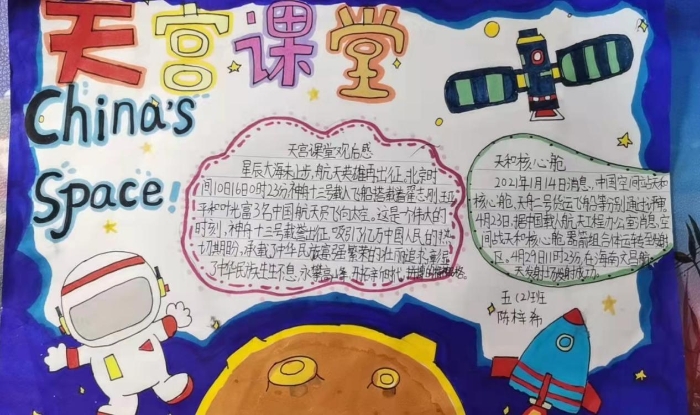 天宫课堂
China's
Space!
天宫课堂观后感
星辰大海未止步,航天英雄再出征。北京时
间10月16日0时23分神舟十三号载人飞船搭载着翟志刚,王亚
平和叶光富3名中国航天员飞向太空。这是个伟大的
时刻,神舟十三号载誉出征,吸引了亿万中国人民的热
切期盼,承载了中华民族富强繁荣的壮丽追求,彰显
了中华民族生生不息,永攀高峰
天和核心舱
2021年1月14日消息,中国空间站天和
核心舱,天舟二号货运飞船等分别通出评审
4月23日,据中国载人航天工程办公室消息,空
间站天和核心舱
区。4月29日11时23分在海南文昌航
天发射场发射成功。
五(2)班
陈梓希